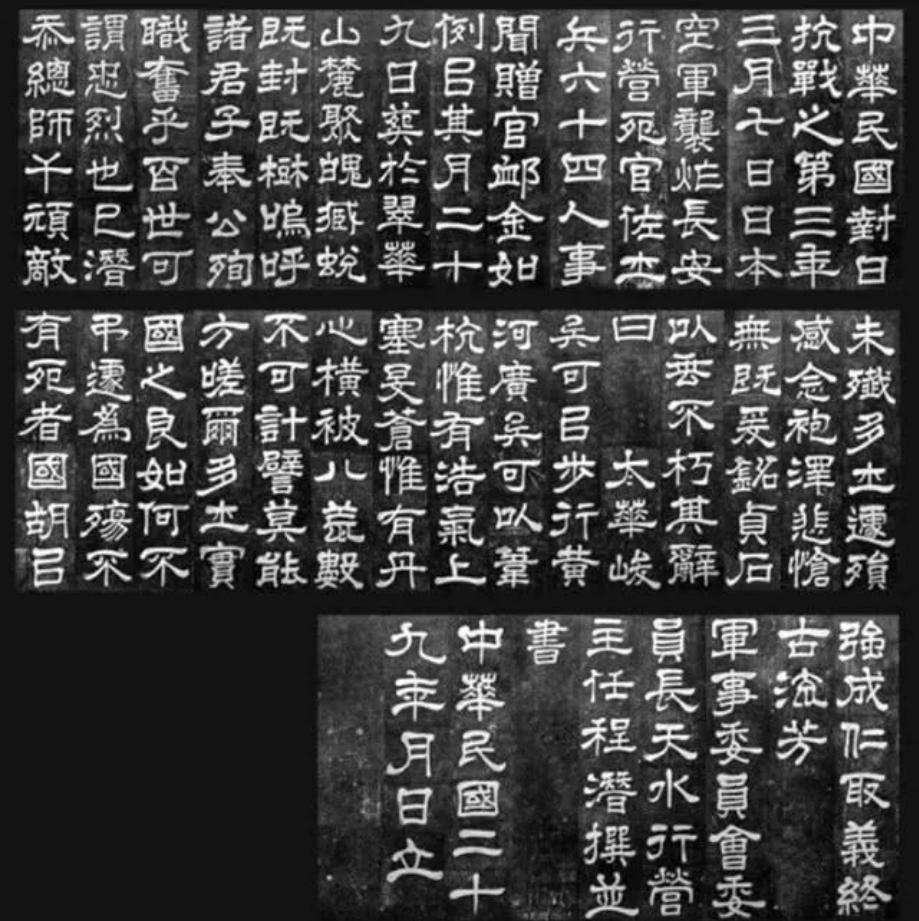 中華民國對日
抗戰之第三年
三月七日日本
空軍襲炸長安
行營死官佐士
兵六十四人事
聞贈官卹金如
例㠯其月二十
九日葬於翠華
山麓聚魄臧蛻
既封既樹嗚呼
諸君子奉公殉
職奮乎百世可
謂忠烈也已潛
忝總師干頑敵
未殲多士遽殞
感念袍澤悲愴
無既爰銘貞石
以垂不朽其辭
曰　太華峻
矣可㠯步行黃
河廣矣可以葦
杭惟有浩氣上
塞旻蒼惟有丹
心橫被八荒數
不可計譬莫能
方嗟爾多士實
國之良如何不
弔遽為國殤不
有死者國胡㠯
強成仁取義終
古流芳
軍事委員會委
員長天水行營
主任程潛撰並
書
中華民國二十
九年月日立